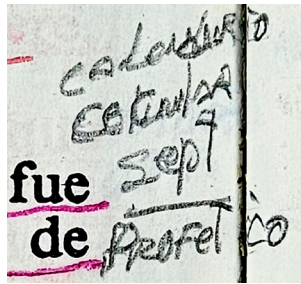 calendario
sept
fue
de Profetico